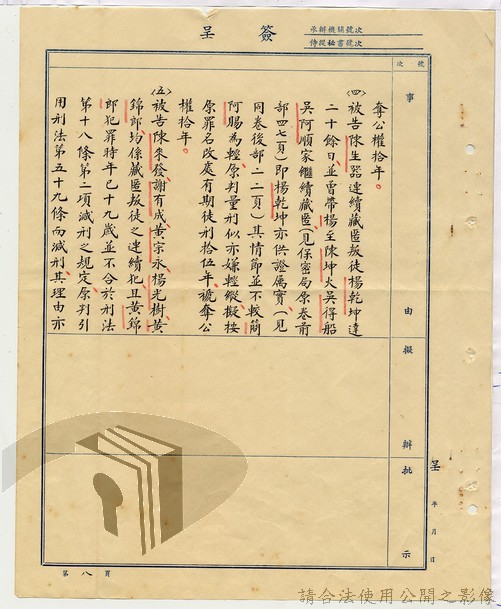 簽呈
承辦機關號次
侍從秘書號次
號次
事由
擬辦
批示
奪公權拾年。
㈣被告陳生器連續藏匿叛徒楊乾坤達
二十餘日、並曾帶楊至陳坤火、吳得船、
吳阿順家繼續藏匿（見保密局原卷前
部四七頁）即楊乾坤亦供證屬實（見
同卷後部二二頁）其情節並不較簡
阿賜為輕、原判量刑似亦嫌輕縱、擬按
原罪名改處有期徒刑拾伍年、褫奪公
權拾年。
㈤被告陳來發、謝有成、黃宗永、楊光樹、黃
錦郎、均係藏匿叛徒之連續犯、且黃錦
郎犯罪時年已十九歲並不合於刑法
第十八條第二項減刑之規定、原判引
用刑法第五十九條而減刑、其理由亦
呈 年 月 日
第八頁
請合法使用公開之影像